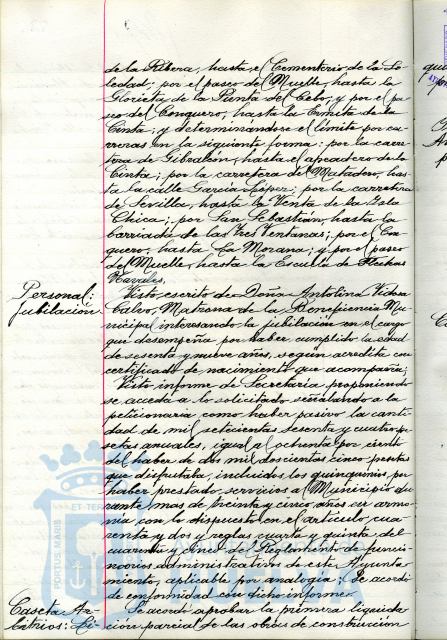 de la Ribera, hasta el Cementerio de la So-
ledad; por el paseo del Muelle, hasta la
Glorieta de la Punta del Cebo; y por el pa-
seo del Conquero, hasta la Ermita de la
Cinta; y determinandose el límite por ca-
rreras en la siguiente forma: por la carre-
tera de Gibraleón, hasta el apeadero de la
Cinta; por la carretera del Matadero, has-
ta la calle Garcia López; por la carretera
de Sevilla, hasta la Venta de la Isla
Chica; por San Sebastián, hasta la
barriada de las Tres Ventanas; por el Con-
quero, hasta La Morana; y por el paseo
del Muelle, hasta la Escuela de Flechas
Navales.
Personal:
Jubilación
Visto escrito de Doña Antolina
Calvo, Matrona de la Beneficencia Mu-
nicipal interesando la jubilación en el cargo
que desempeña por haber cumplido la edad
de sesenta y nueve años, según acredita con
certificado de nacimiento que acompaña;
Visto informe de Secretaría proponiendo
se acceda a lo solicitado señalando a la
peticionaria como haber pasivo la canti-
dad de mil setecientas sesenta y cuatro pe-
setas anuales, igual al ochenta por ciento
del haber de dos mil doscientos cinco pesetas
que disfrutaba, incluidos los quinquenios, por
haber prestado servicios al Municipio du-
rante mas de treinta y cinco años en armo-
nía con lo dispuesto en el artículo cua-
renta y dos y reglas cuarta y quinta del
cuarenta y cinco del Reglamento de funcio-
narios administrativos de este Ayunta-
miento, aplicable por analogía; Se acordó
de conformidad con dicho informe.
Caseta Ar-
bitrios: Li-
Se acordó aprobar la primera liquida-
ción parcial de las obras de construcción
PORTUS MARIS
ET TERR